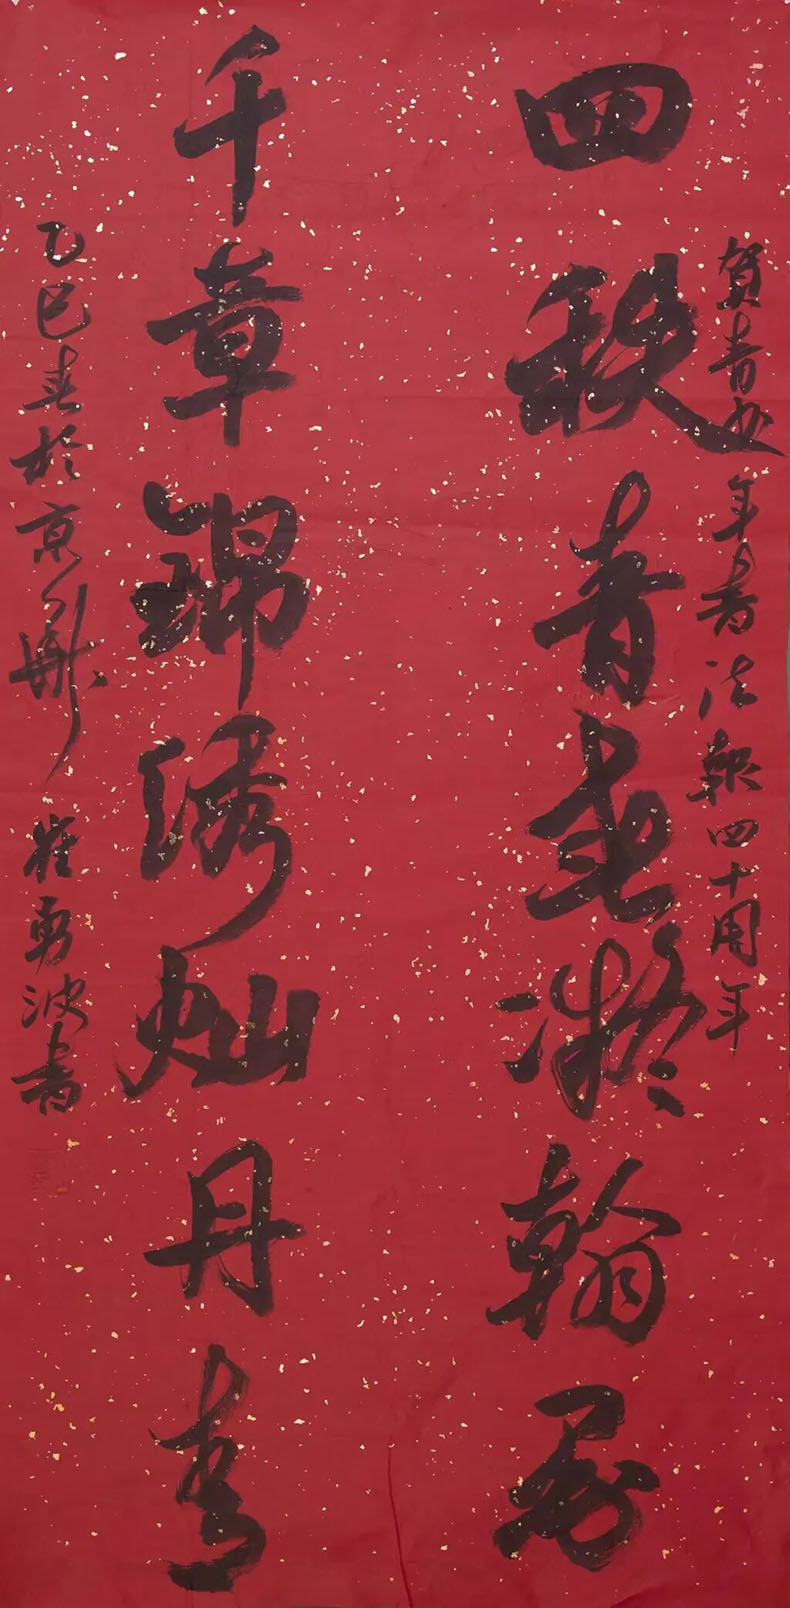 賀青少年書法報四十周年
四秩青春凝翰墨
千章錦绣灿丹青
乙巳春於京 崔勇波書